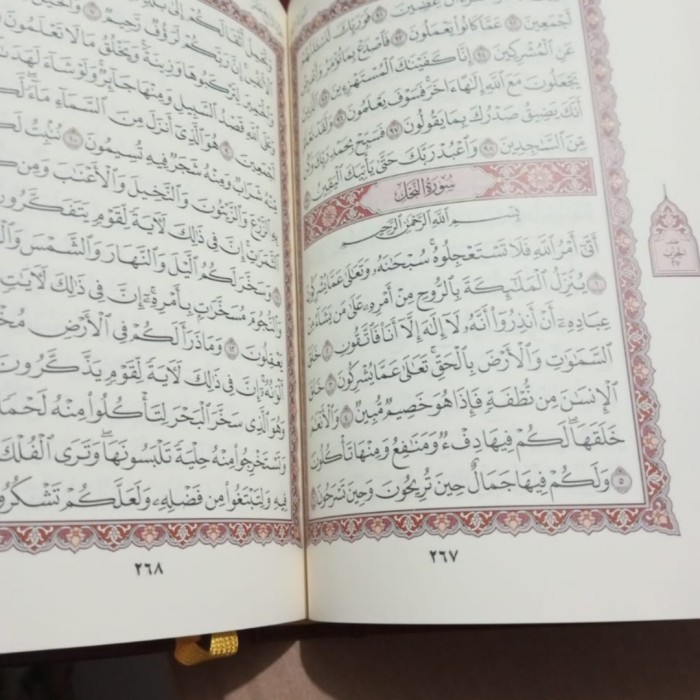 عِضِينَ ٩١ فَوَرَبِّكَ لَنَسْـَٔلَنَّهُمْ
أَجْمَعِينَ ٩٢ عَمَّا كَانُوا۟ يَعْمَلُونَ ٩٣ فَٱصْدَعْ بِمَا تُؤْمَرُ وَأَعْرِضْ
عَنِ ٱلْمُشْرِكِينَ ٩٤ إِنَّا كَفَيْنَـٰكَ ٱلْمُسْتَهْزِءِينَ ٩٥ ٱلَّذِينَ
يَجْعَلُونَ مَعَ ٱللَّهِ إِلَـٰهًا ءَاخَرَ فَسَوْفَ يَعْلَمُونَ ٩٦ وَلَقَدْ نَعْلَمُ
أَنَّكَ يَضِيقُ صَدْرُكَ بِمَا يَقُولُونَ ٩٧ فَسَبِّحْ بِحَمْدِ رَبِّكَ وَكُن
مِّنَ ٱلسَّـٰجِدِينَ ٩٨ وَٱعْبُدْ رَبَّكَ حَتَّىٰ يَأْتِيَكَ ٱلْيَقِينُ ٩٩
سُورَةُ ٱلنَّحْلِ
بِسْمِ ٱللَّهِ ٱلرَّحْمَـٰنِ ٱلرَّحِيمِ
أَتَىٰٓ أَمْرُ ٱللَّهِ فَلَا تَسْتَعْجِلُوهُ ۚ سُبْحَـٰنَهُۥ وَتَعَـٰلَىٰ عَمَّا يُشْرِكُونَ
١ يُنَزِّلُ ٱلْمَلَـٰٓئِكَةَ بِٱلرُّوحِ مِنْ أَمْرِهِۦ عَلَىٰ مَن يَشَآءُ مِنْ
عِبَادِهِۦٓ أَنْ أَنذِرُوٓا۟ أَنَّهُۥ لَآ إِلَـٰهَ إِلَّآ أَنَا۠ فَٱتَّقُونِ ٢ خَلَقَ
ٱلسَّمَـٰوَٰتِ وَٱلْأَرْضَ بِٱلْحَقِّ ۚ تَعَـٰلَىٰ عَمَّا يُشْرِكُونَ ٣ خَلَقَ
ٱلْإِنسَـٰنَ مِن نُّطْفَةٍ فَإِذَا هُوَ خَصِيمٌ مُّبِينٌ ٤ وَٱلْأَنْعَـٰمَ
خَلَقَهَا ۗ لَكُمْ فِيهَا دِفْءٌ وَمَنَـٰفِعُ وَمِنْهَا تَأْكُلُونَ
٥ وَلَكُمْ فِيهَا جَمَالٌ حِينَ تُرِيحُونَ وَحِينَ تَسْرَحُونَ ٦
٢٦٧
حزب
٢٧
وَتَحْمِلُ أَثْقَالَكُمْ إِلَىٰ بَلَدٍ
إِنَّ رَبَّكُمْ لَرَءُوفٌ رَّحِيمٌ ٧ وَٱلْخَيْلَ
وَٱلْحَمِيرَ لِتَرْكَبُوهَا وَزِينَةً ۚ وَيَخْلُقُ مَا لَا تَعْلَمُونَ
وَعَلَى ٱللَّهِ قَصْدُ ٱلسَّبِيلِ وَمِنْهَا جَآئِرٌ ۚ وَلَوْ شَآءَ لَهَدَىٰكُمْ
أَجْمَعِينَ ٩ هُوَ ٱلَّذِىٓ أَنزَلَ مِنَ ٱلسَّمَآءِ مَآءً ۖ لَّكُم
مِّنْهُ شَرَابٌ وَمِنْهُ شَجَرٌ فِيهِ تُسِيمُونَ ١٠ يُنۢبِتُ لَكُم
بِهِ ٱلزَّرْعَ وَٱلزَّيْتُونَ وَٱلنَّخِيلَ وَٱلْأَعْنَـٰبَ وَمِن كُلِّ
ٱلثَّمَرَٰتِ ۗ إِنَّ فِى ذَٰلِكَ لَـَٔايَةً لِّقَوْمٍ يَتَفَكَّرُونَ
١١ وَسَخَّرَ لَكُمُ ٱلَّيْلَ وَٱلنَّهَارَ وَٱلشَّمْسَ وَٱلْ
وَٱلنُّجُومُ مُسَخَّرَٰتٌۢ بِأَمْرِهِۦٓ ۗ إِنَّ فِى ذَٰلِكَ لَـَٔايَـٰتٍ
يَعْقِلُونَ ١٢ وَمَا ذَرَأَ لَكُمْ فِى ٱلْأَرْضِ مُخْ
أَلْوَٰنُهُۥٓ ۗ إِنَّ فِى ذَٰلِكَ لَـَٔايَةً لِّقَوْمٍ يَذَّكَّرُونَ
وَهُوَ ٱلَّذِى سَخَّرَ ٱلْبَحْرَ لِتَأْكُلُوا۟ مِنْهُ لَحْمًا
وَتَسْتَخْرِجُوا۟ مِنْهُ حِلْيَةً تَلْبَسُونَهَا وَتَرَى ٱلْفُلْكَ
فِيهِ وَلِتَبْتَغُوا۟ مِن فَضْلِهِۦ وَلَعَلَّكُمْ تَشْكُرُو
٢٦٨